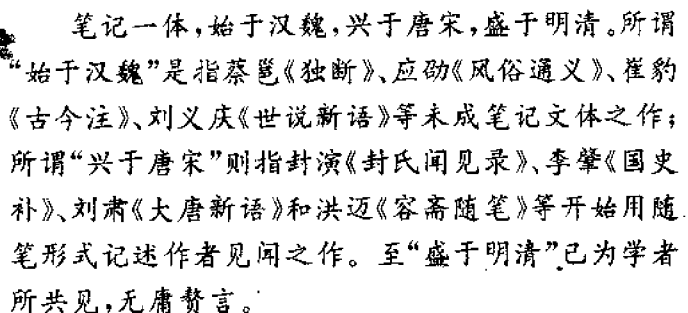 笔记一体,始于汉魏,兴于唐宋,盛于明清。所谓
“始于汉魏”是指蔡邕《独断》、应劭《风俗通义》、崔豹
《古今注》、刘义庆《世说新语》等未成笔记文体之作;
所谓“兴于唐宋”则指封演《封氏闻见录》、李肇《国史
补》、刘肃《大唐新语》和洪迈《容斋随笔》等开始用随
笔形式记述作者见闻之作。至“盛于明清”已为学者
所共见,无庸赘言。